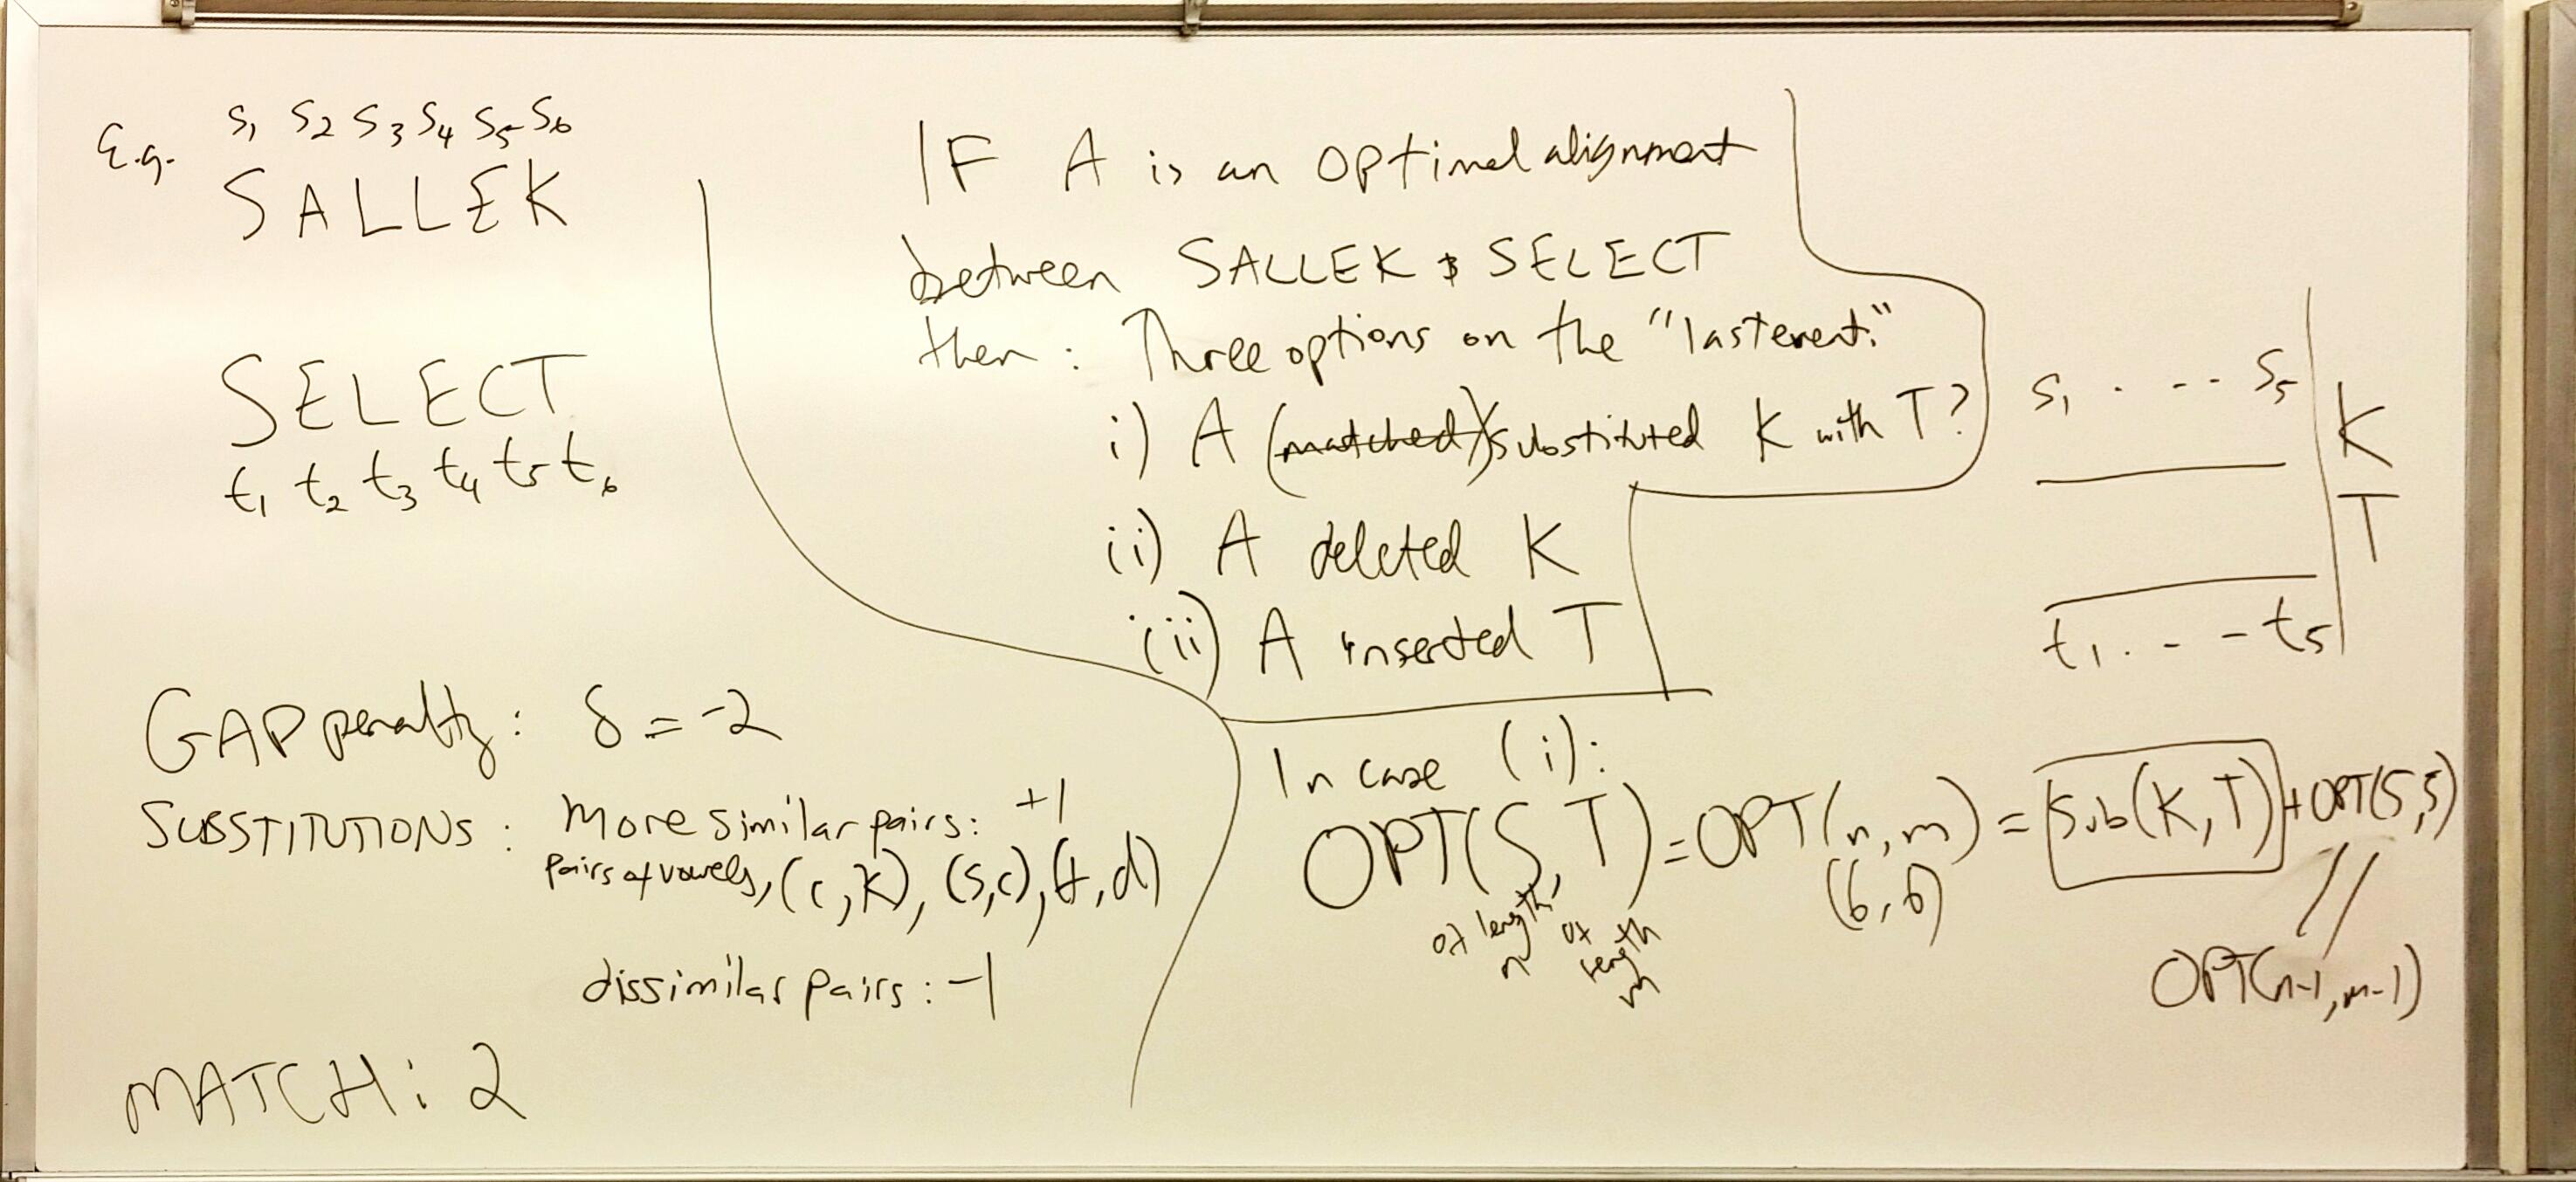 E.g.
S1 S2 S3 S4 S5 S6
SALLEK
SELECT
t1 t2 t3 t4 t5 t6
GAP penalty: δ = -2
SUBSTITUTIONS: More similar pairs: +1
pairs of vowels, (c,k), (s,c), (t,d)
dissimilar pairs: -1
MATCH: 2
IF A is an optimal alignment
between SALLEK & SELECT
then: Three options on the "last event:"
i) A (matched)/substituted K with T?
ii) A deleted K
iii) A inserted T
S1 . . - - S5 K
T
t1 . - - t5
In case (i):
OPT(S, T) = OPT(n, m) = sub(K, T) + OPT(5,5)
of length n, of length m
(6,6)
//
OPT(n-1, m-1)